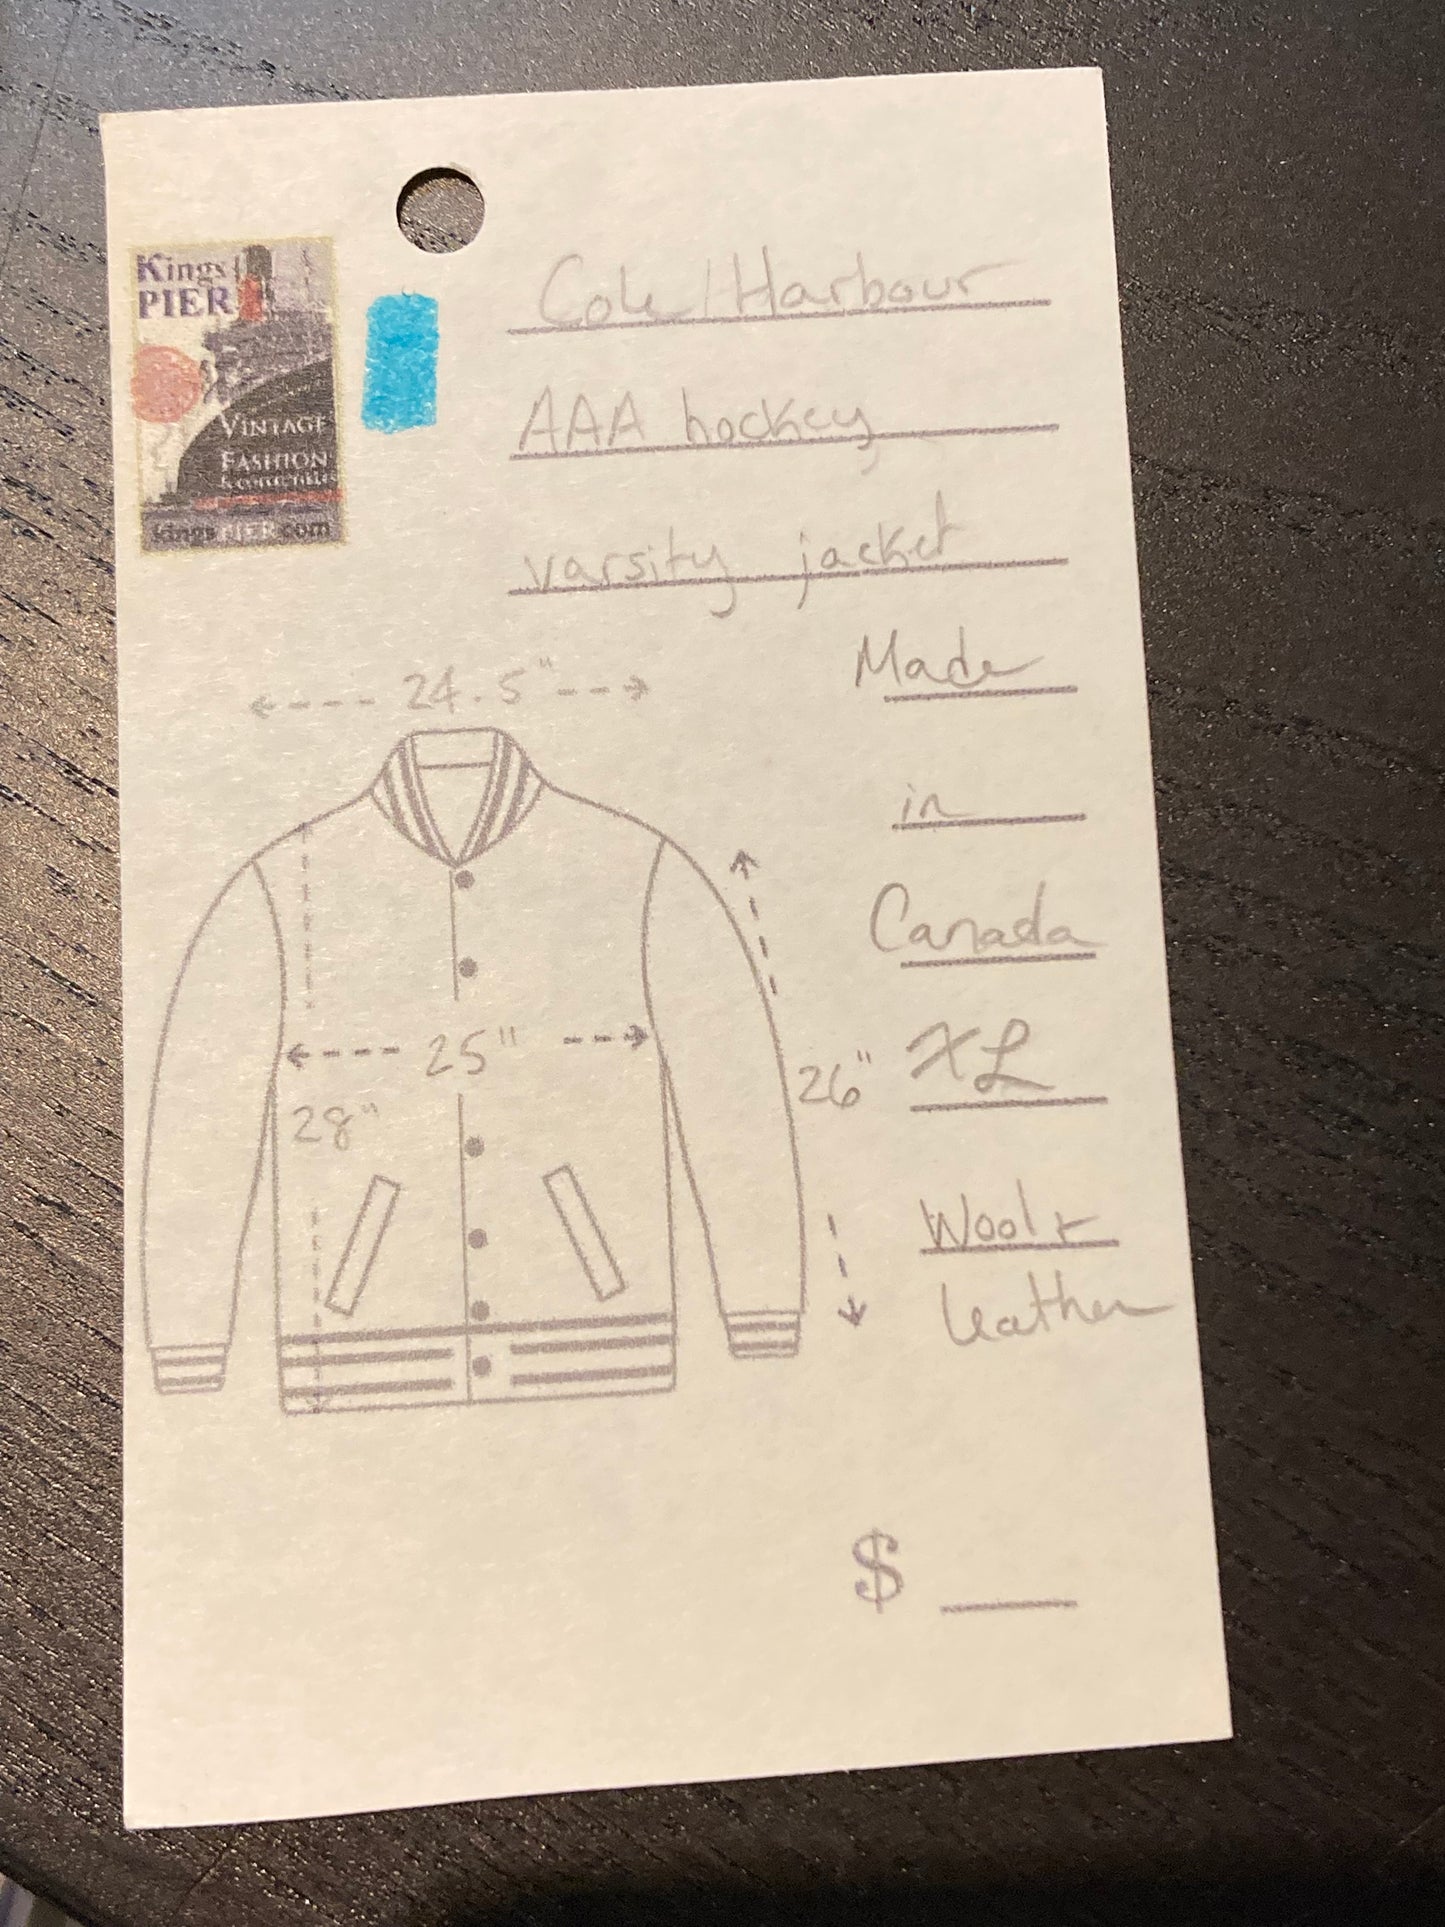 Kings
PIER
VINTAGE
FASHION
& COLLECTIBLES
kingsPIER.com
Cole Harbour
AAA hockey
varsity jacket
Made
in
Canada
XL
Wool +
leather
24.5"
25"
28"
26"
$